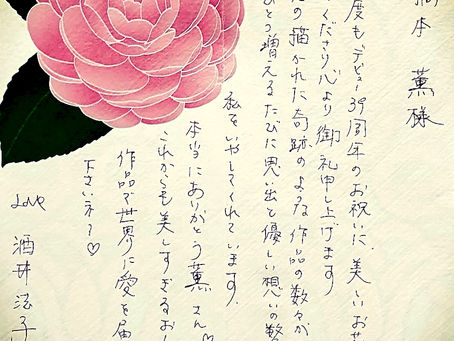 本 薫様
度もデビュー39周年のお祝いに、美しいお
くださり心より御礼申し上げます
の描かれた奇跡のような作品の数々が
ひとつ増えるたびに思い出と優しい想いの数
私をいやしてくれています。
本当にありがとう薫さん♡
これからも美しすぎるお
作品で世界に愛を届
下さいネ〜♡
Love 酒井法子